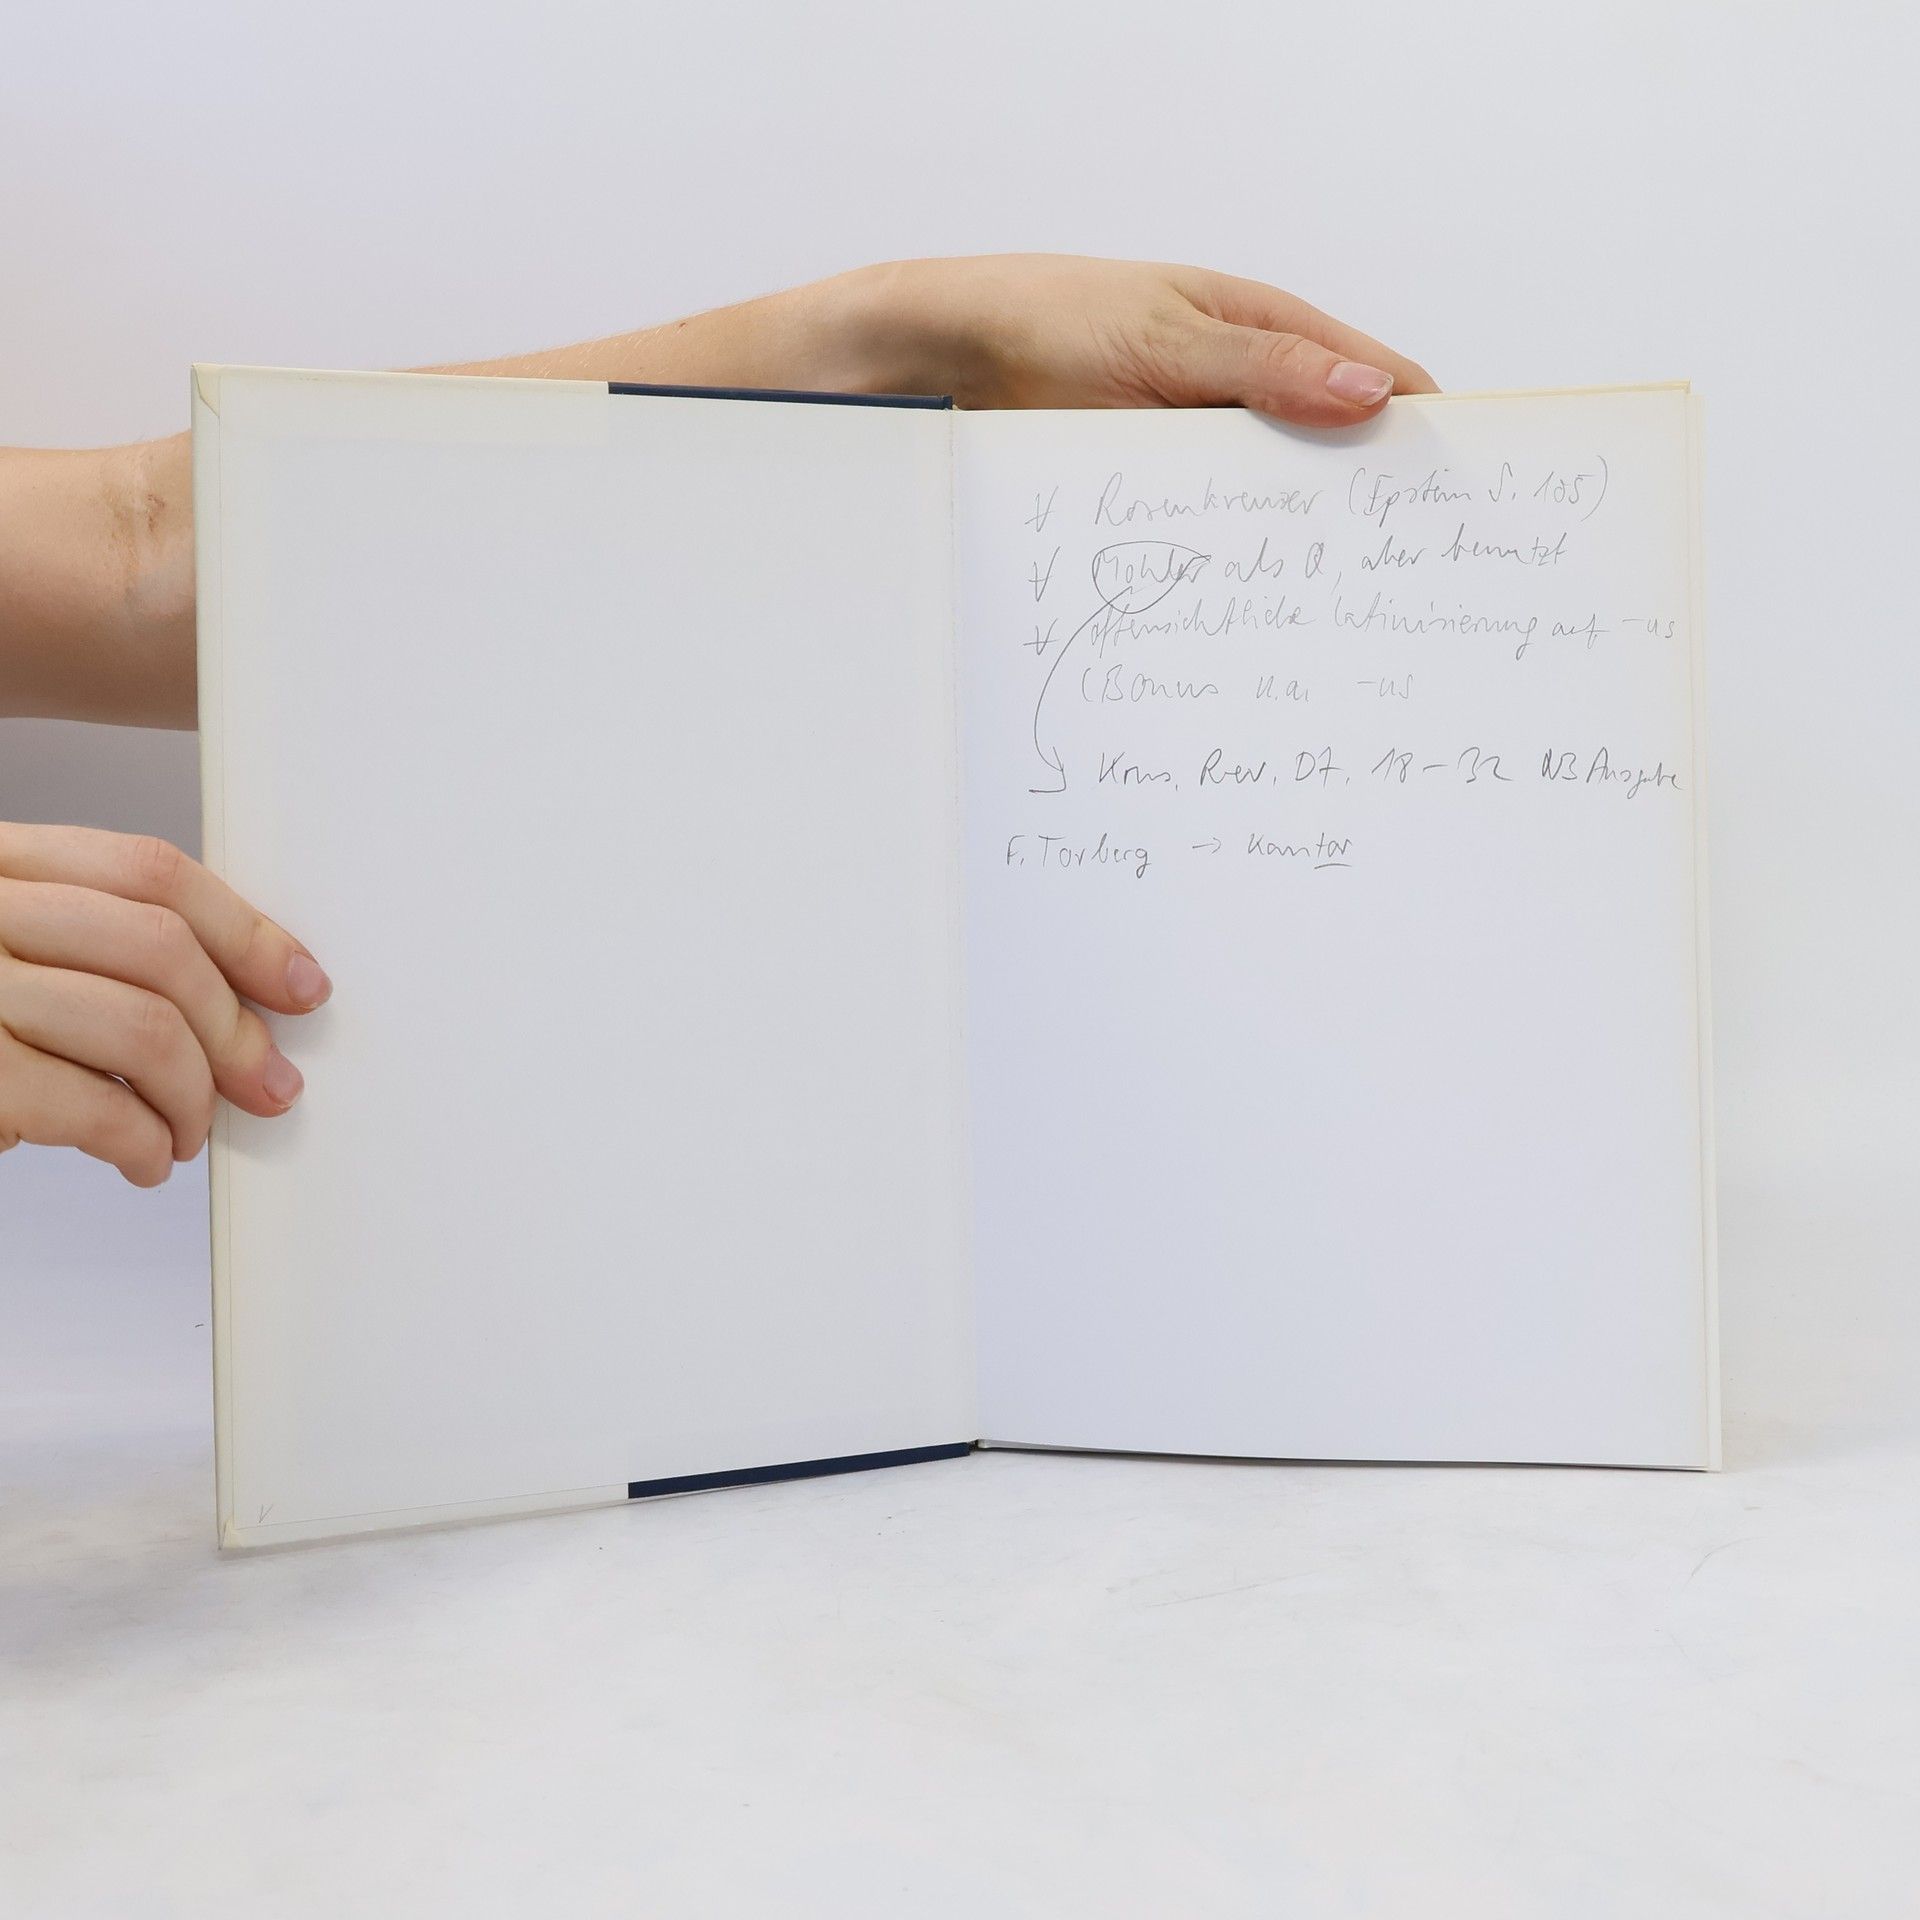 ∀ Rosenkreuzer (Epstein S. 105)
∀ Mohler als Q, aber benutzt
∀ offensichtliche Latinisierung auf -us
(Bonus u.a. -us
→ Kons. Rev. Dt. 18-32 WB Ausgabe
F. Torberg → Kantor